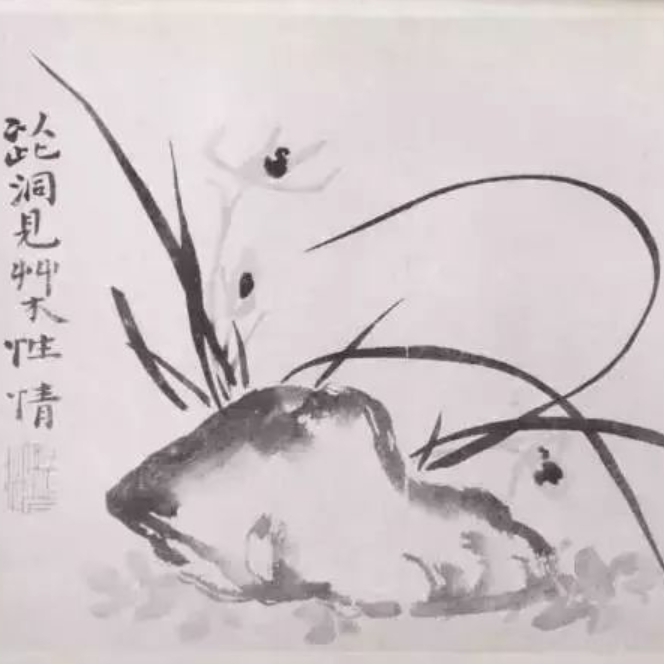 洞見艸木性情